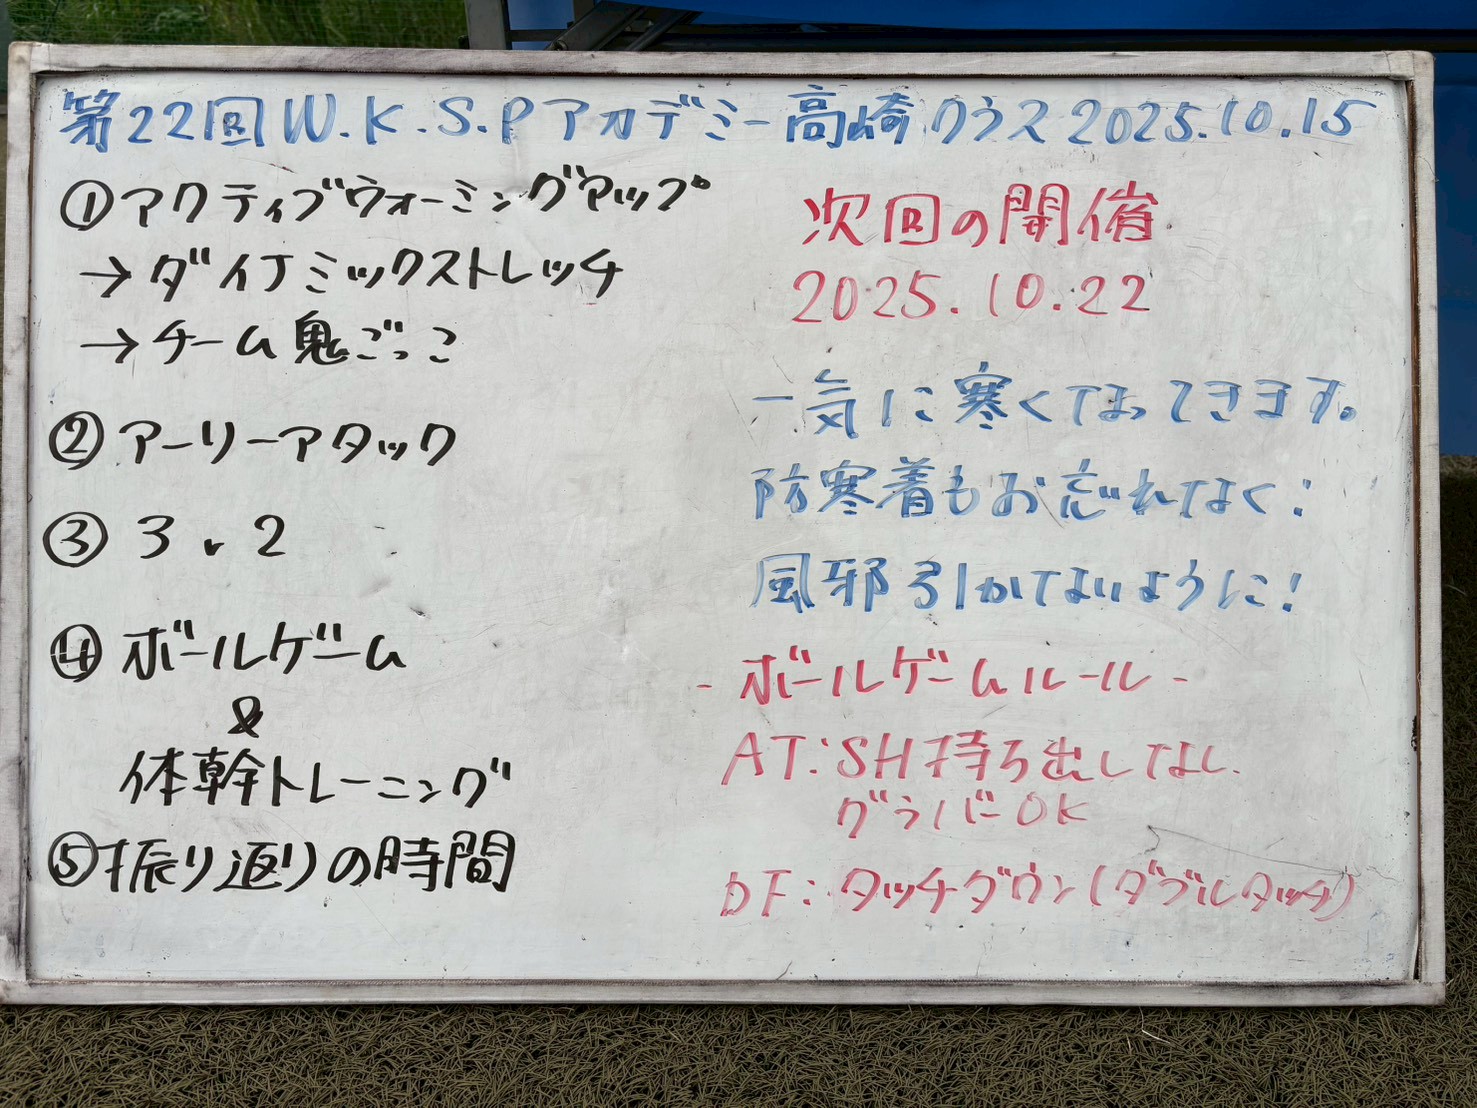 第22回W.K.S.Pアカデミー高崎クラス2025.10.15
①アクティブウォーミングアップ
→ダイナミックストレッチ
→チーム鬼ごっこ
②アーリーアタック
③3v2
④ボールゲーム
&
体幹トレーニング
⑤振り返りの時間
次回の開催
2025.10.22
一気に寒くなってきます。
防寒着もお忘れなく!
風邪引かないように!
-ボールゲームルール-
AT:SH持ち出しなし
グラバーOK
DF:タッチダウン(ダブルタッチ)